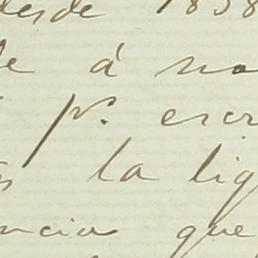 desde 1838
á no
pr. escri
la lig
ncia que